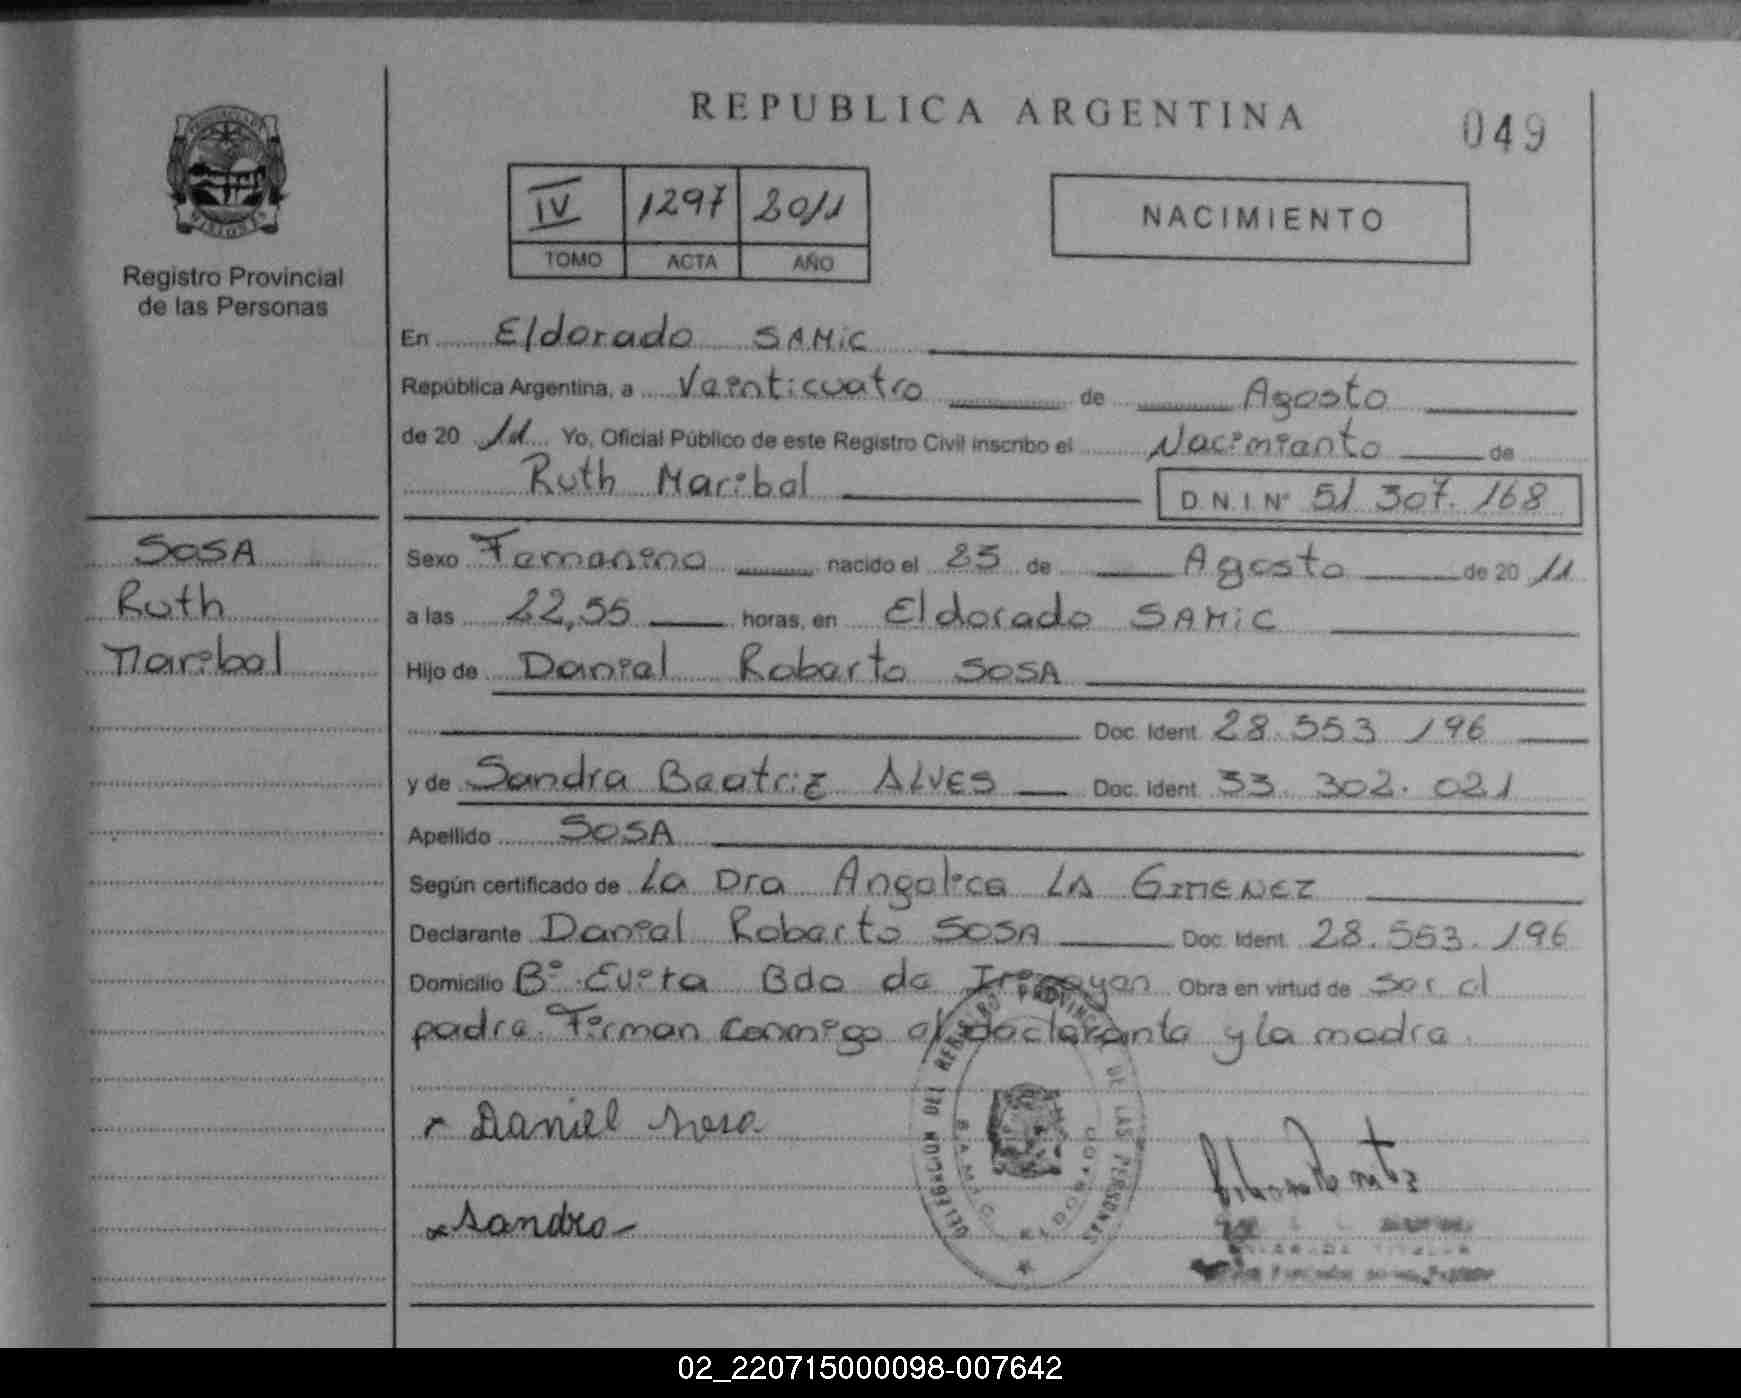 REPUBLICA ARGENTINA
049
IV 1297 2011
TOMO ACTA AÑO
NACIMIENTO
Registro Provincial
de las Personas
En Eldorado SAMIC
República Argentina, a Veinticuatro de Agosto
de 20 11 Yo, Oficial Público de este Registro Civil inscribo el Nacimiento de
Ruth Maribel D.N.I. Nº 51 307. 168
SOSA
Ruth
Maribel
Sexo Femenino nacido el 23 de Agosto de 20 11
a las 22,55 horas, en Eldorado SAMIC
Hijo de Daniel Roberto SOSA
Doc. Ident. 28.553 196
y de Sandra Beatriz ALVES Doc. Ident. 33. 302. 021
Apellido SOSA
Según certificado de La Dra Angelica LA GIMENEZ
Declarante Daniel Roberto SOSA Doc. Ident. 28.553.196
Domicilio Bº Evita Bdo de Irigoyen Obra en virtud de ser el
padre. Firman conmigo el declarante y la madre.
Daniel Sosa
Sandra
DELEGACION DEL REGISTRO PROVINCIAL DE LAS PERSONAS
SAMIC ELDORADO
02_220715000098-007642